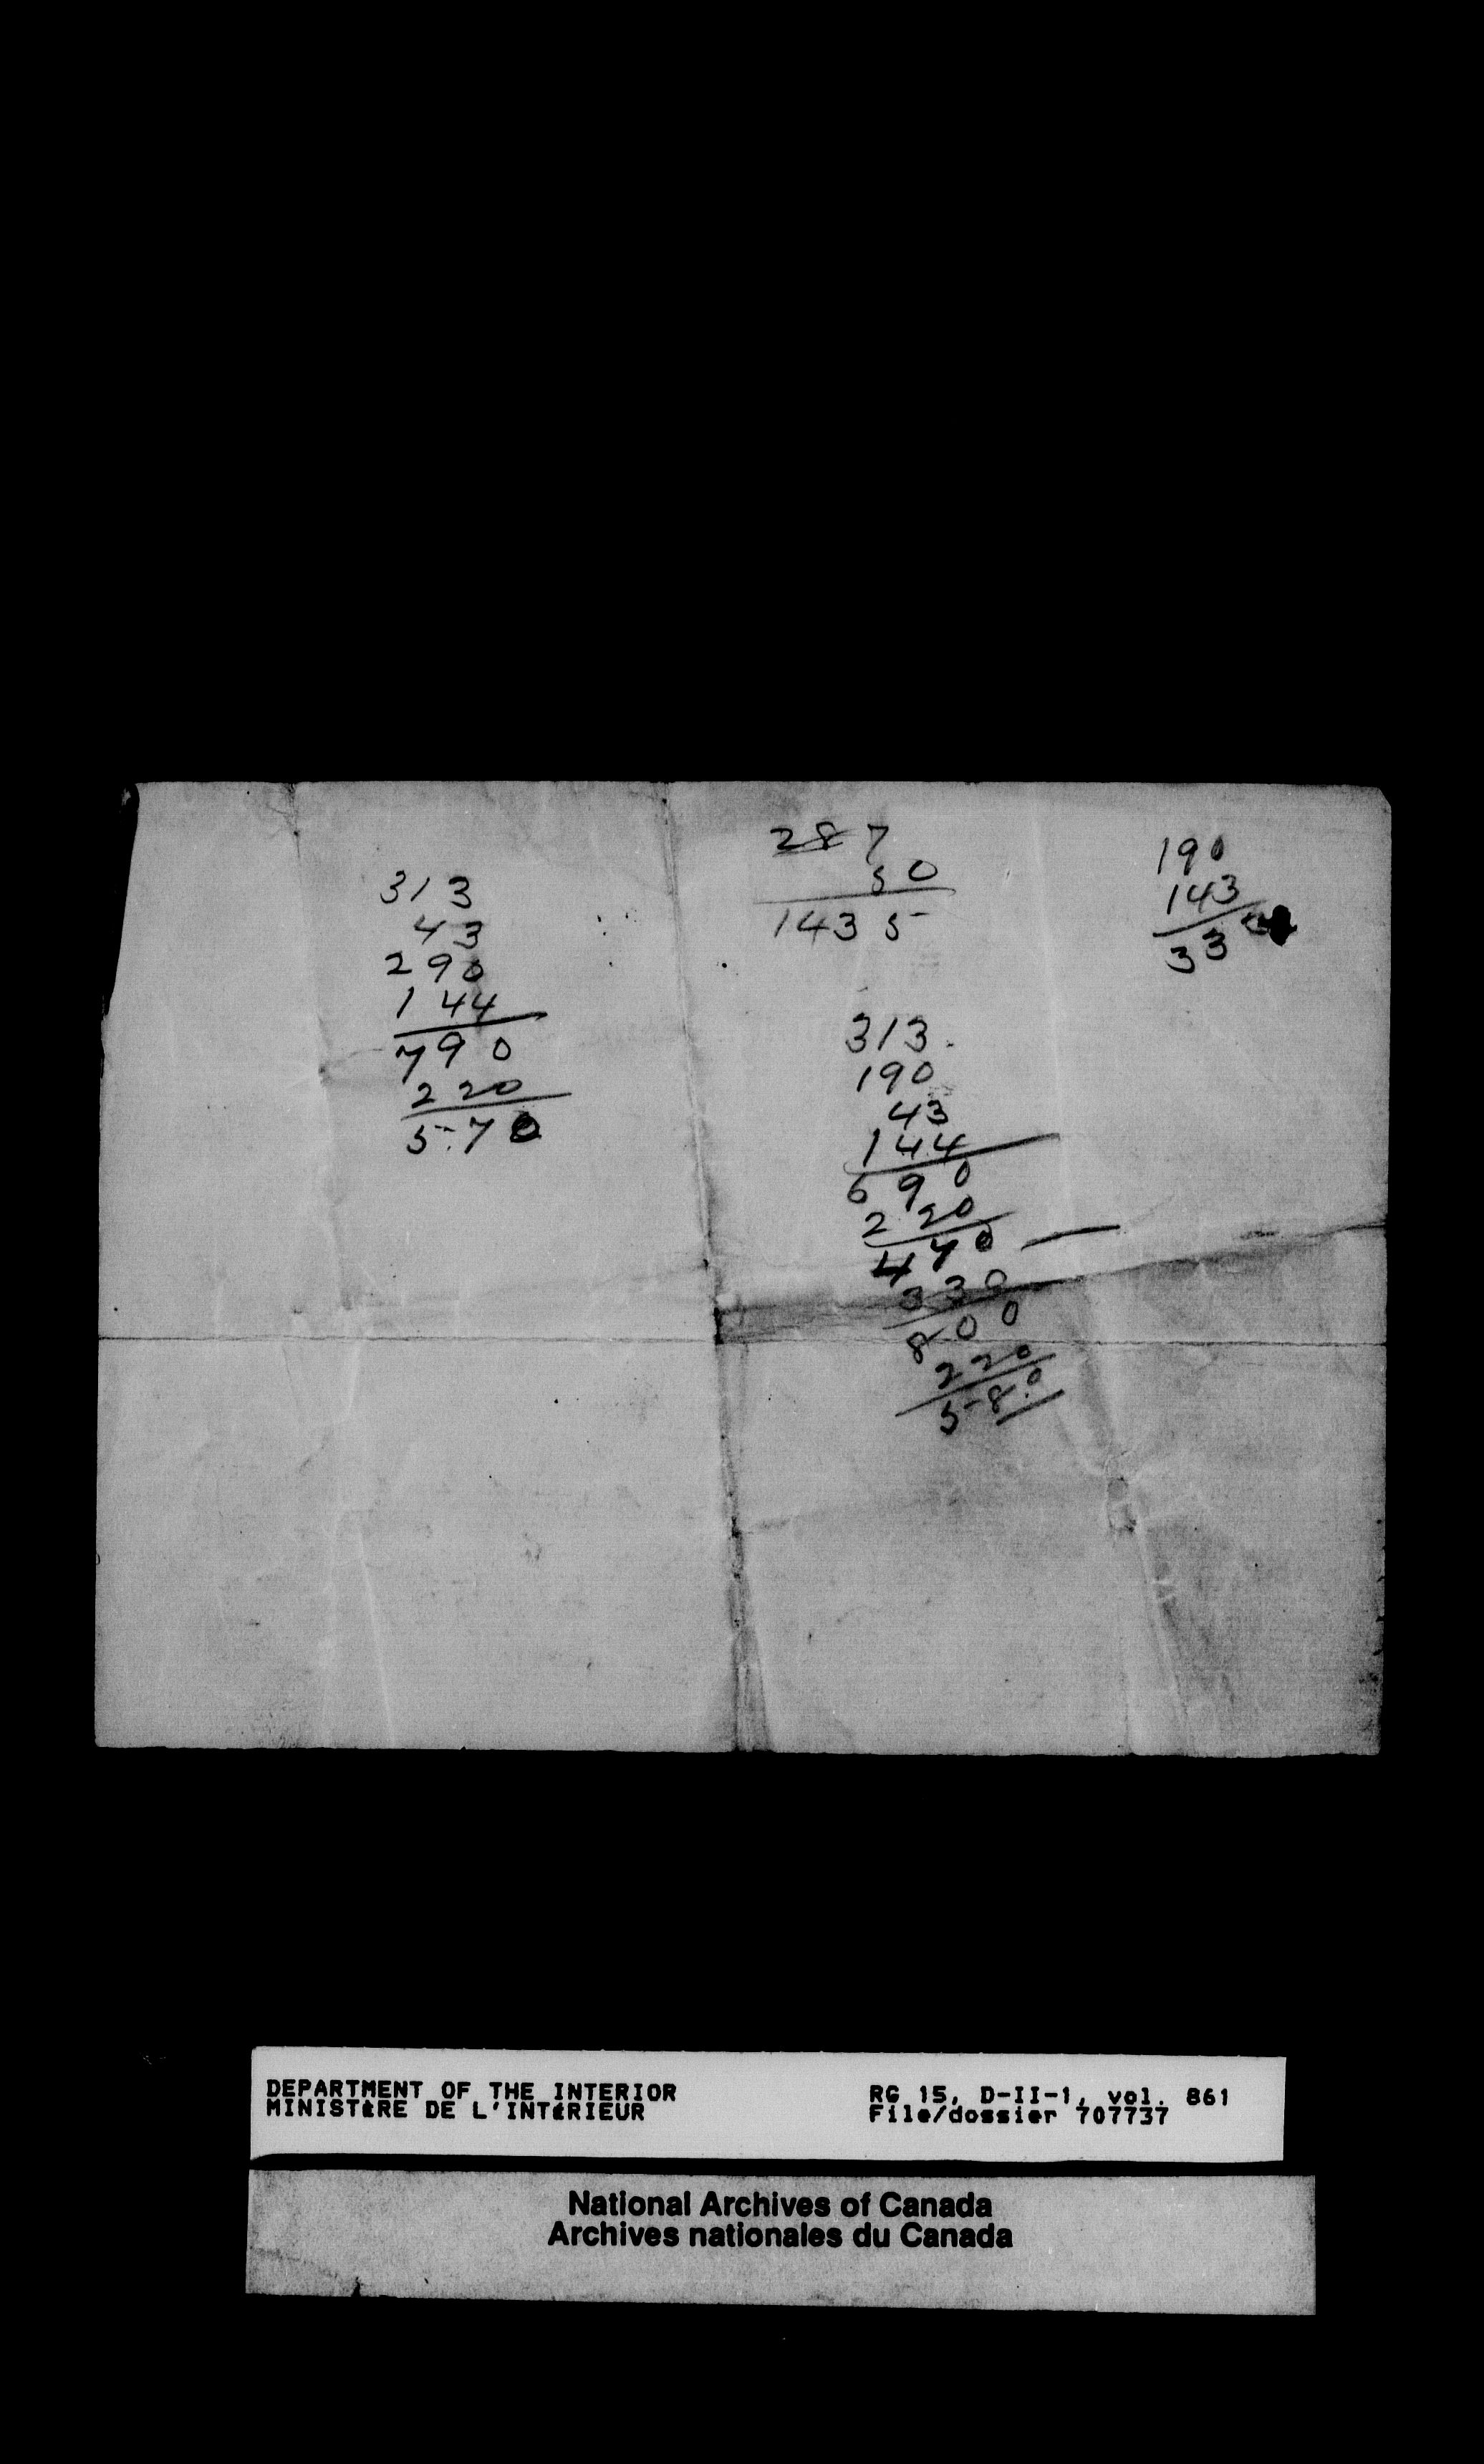 313
43
290
144
790
220
570
287
50
1435
190
143
33
313.
190
43
144
690
220
470
330
800
220
580
DEPARTMENT OF THE INTERIOR
MINISTÈRE DE L'INTÉRIEUR
RG 15, D-II-1, vol. 861
File/dossier 707737
National Archives of Canada
Archives nationales du Canada